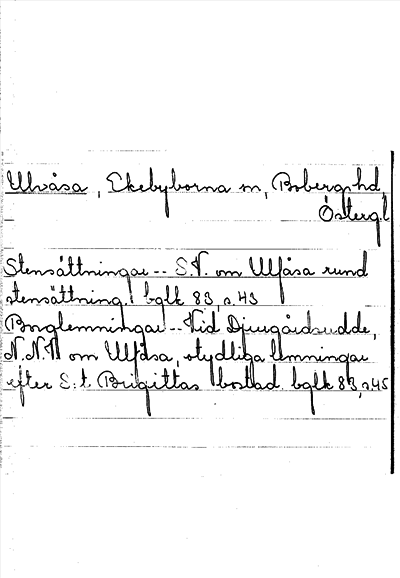 Ulvåsa, Ekebyborna sn, Bobergs hd,
Östergl
Stensättningar -- S.V. om Ulfåsa rund
stensättning. bglk 83, s. 43
Borglemningar -- Vid Djurgårdsudde,
N.N.V. om Ulfåsa, otydliga lemningar
efter S:t. Brigittas bostad. bglk 83, s 45